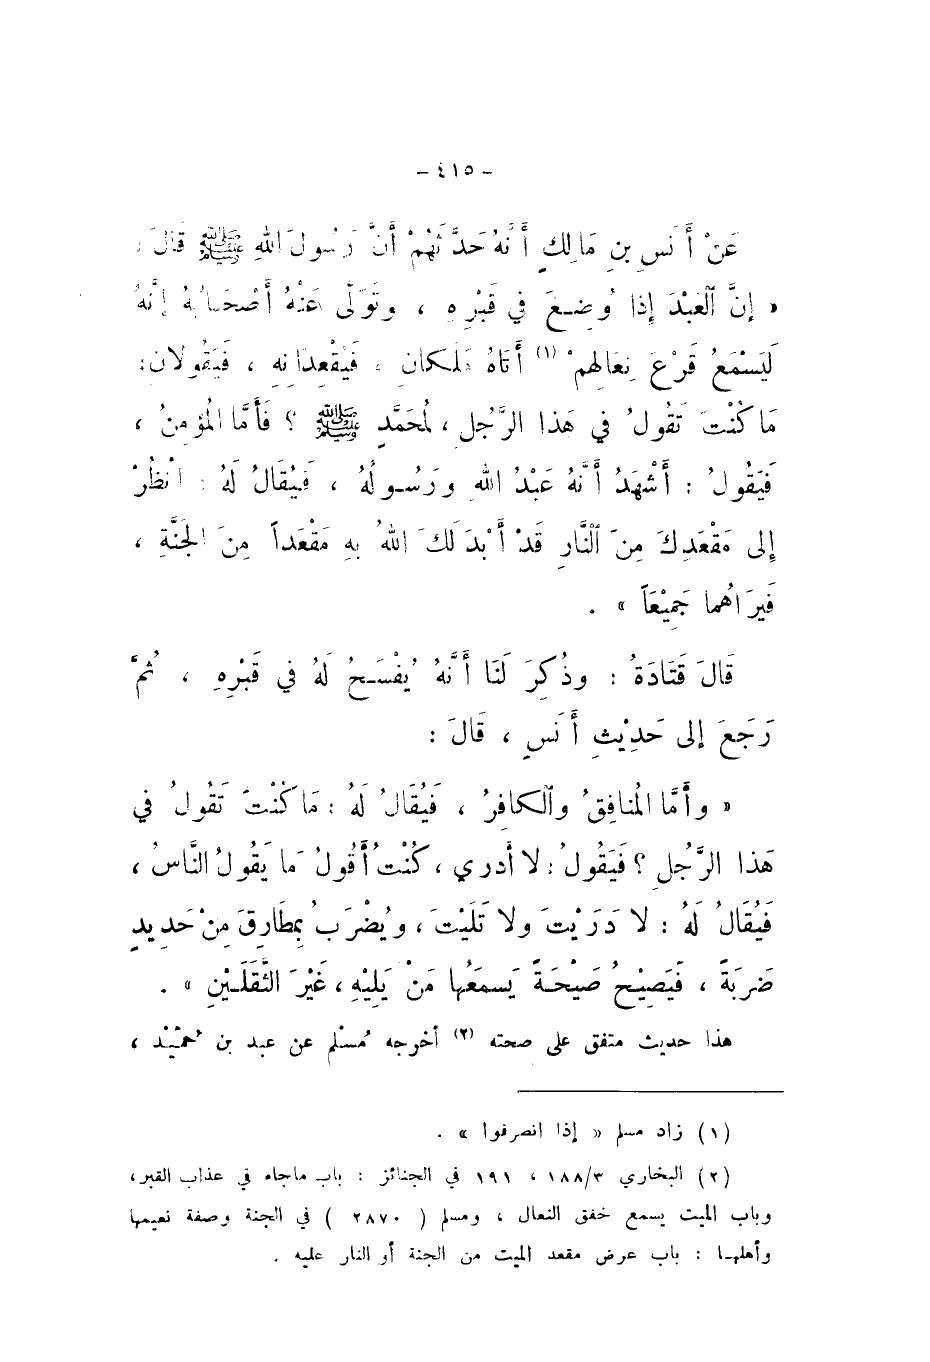 - ٤١٥ -
عَنْ أَنَسِ بنِ مَالِكٍ أَنَّهُ حَدَّثَهُمْ أَنَّ رَسُولَ اللهِ ﷺ قَالَ :
« إِنَّ الْعَبْدَ إِذَا وُضِعَ في قَبْرِهِ ، وتَوَلَّى عَنْهُ أَصْحَابُهُ إِنَّهُ
لَيَسْمَعُ قَرْعَ نِعَالِهِمْ (١) أَتَاهُ مَلَكانِ ، فَيُقْعِدَانِهِ ، فَيَقُولانِ :
مَا كُنْتَ تَقُولُ في هَذا الرَّجُلِ ، لمُحَمَّدٍ ﷺ ؟ فَأَمَّا المُؤمِنُ ،
فَيَقُولُ : أَشْهَدُ أَنَّهُ عَبْدُ اللهِ ورَسُولُهُ ، فَيُقَالُ لَهُ : انْظُرْ
إِلى مَقْعَدِكَ مِنَ النَّارِ قَدْ أَبْدَلَكَ اللهُ بِهِ مَقْعَداً مِنَ الجَنَّةِ ،
فَيَرَاهُما جَمِيْعَاً » .
قَالَ قَتَادَةُ : وذُكِرَ لَنَا أَنَّهُ يُفْسَحُ لَهُ في قَبْرِهِ ، ثُمَّ
رَجَعَ إِلى حَدِيْثِ أَنَسٍ ، قَالَ :
« وأَمَّا المُنافِقُ والْكافِرُ ، فَيُقَالُ لَهُ : مَا كُنْتَ تَقُولُ في
هَذا الرَّجُلِ ؟ فَيَقُولُ : لا أَدري ، كُنْتُ أَقُولُ مَا يَقُولُ النَّاسُ ،
فَيُقَالُ لَهُ : لا دَرَيْتَ ولا تَلَيْتَ ، ويُضْرَبُ بِمَطَارِقَ مِنْ حَدِيدٍ
ضَرْبَةً ، فَيَصِيْحُ صَيْحَةً يَسمَعُها مَنْ يَلِيْهِ ، غَيْرَ الثَّقَلَيْنِ » .
هذا حديث متفق على صحته (٢) أخرجه مُسْلم عن عبد بن حُمَيْد ،
(١) زاد مسلم « إذا انصرفوا » .
(٢) البخاري ١٨٨/٣ ، ١٩١ في الجنائز : باب ماجاء في عذاب القبر ،
وباب الميت يسمع خفق النعال ، ومسلم ( ٢٨٧٠ ) في الجنة وصفة نعيمها
وأهلها : باب عرض مقعد الميت من الجنة أو النار عليه .